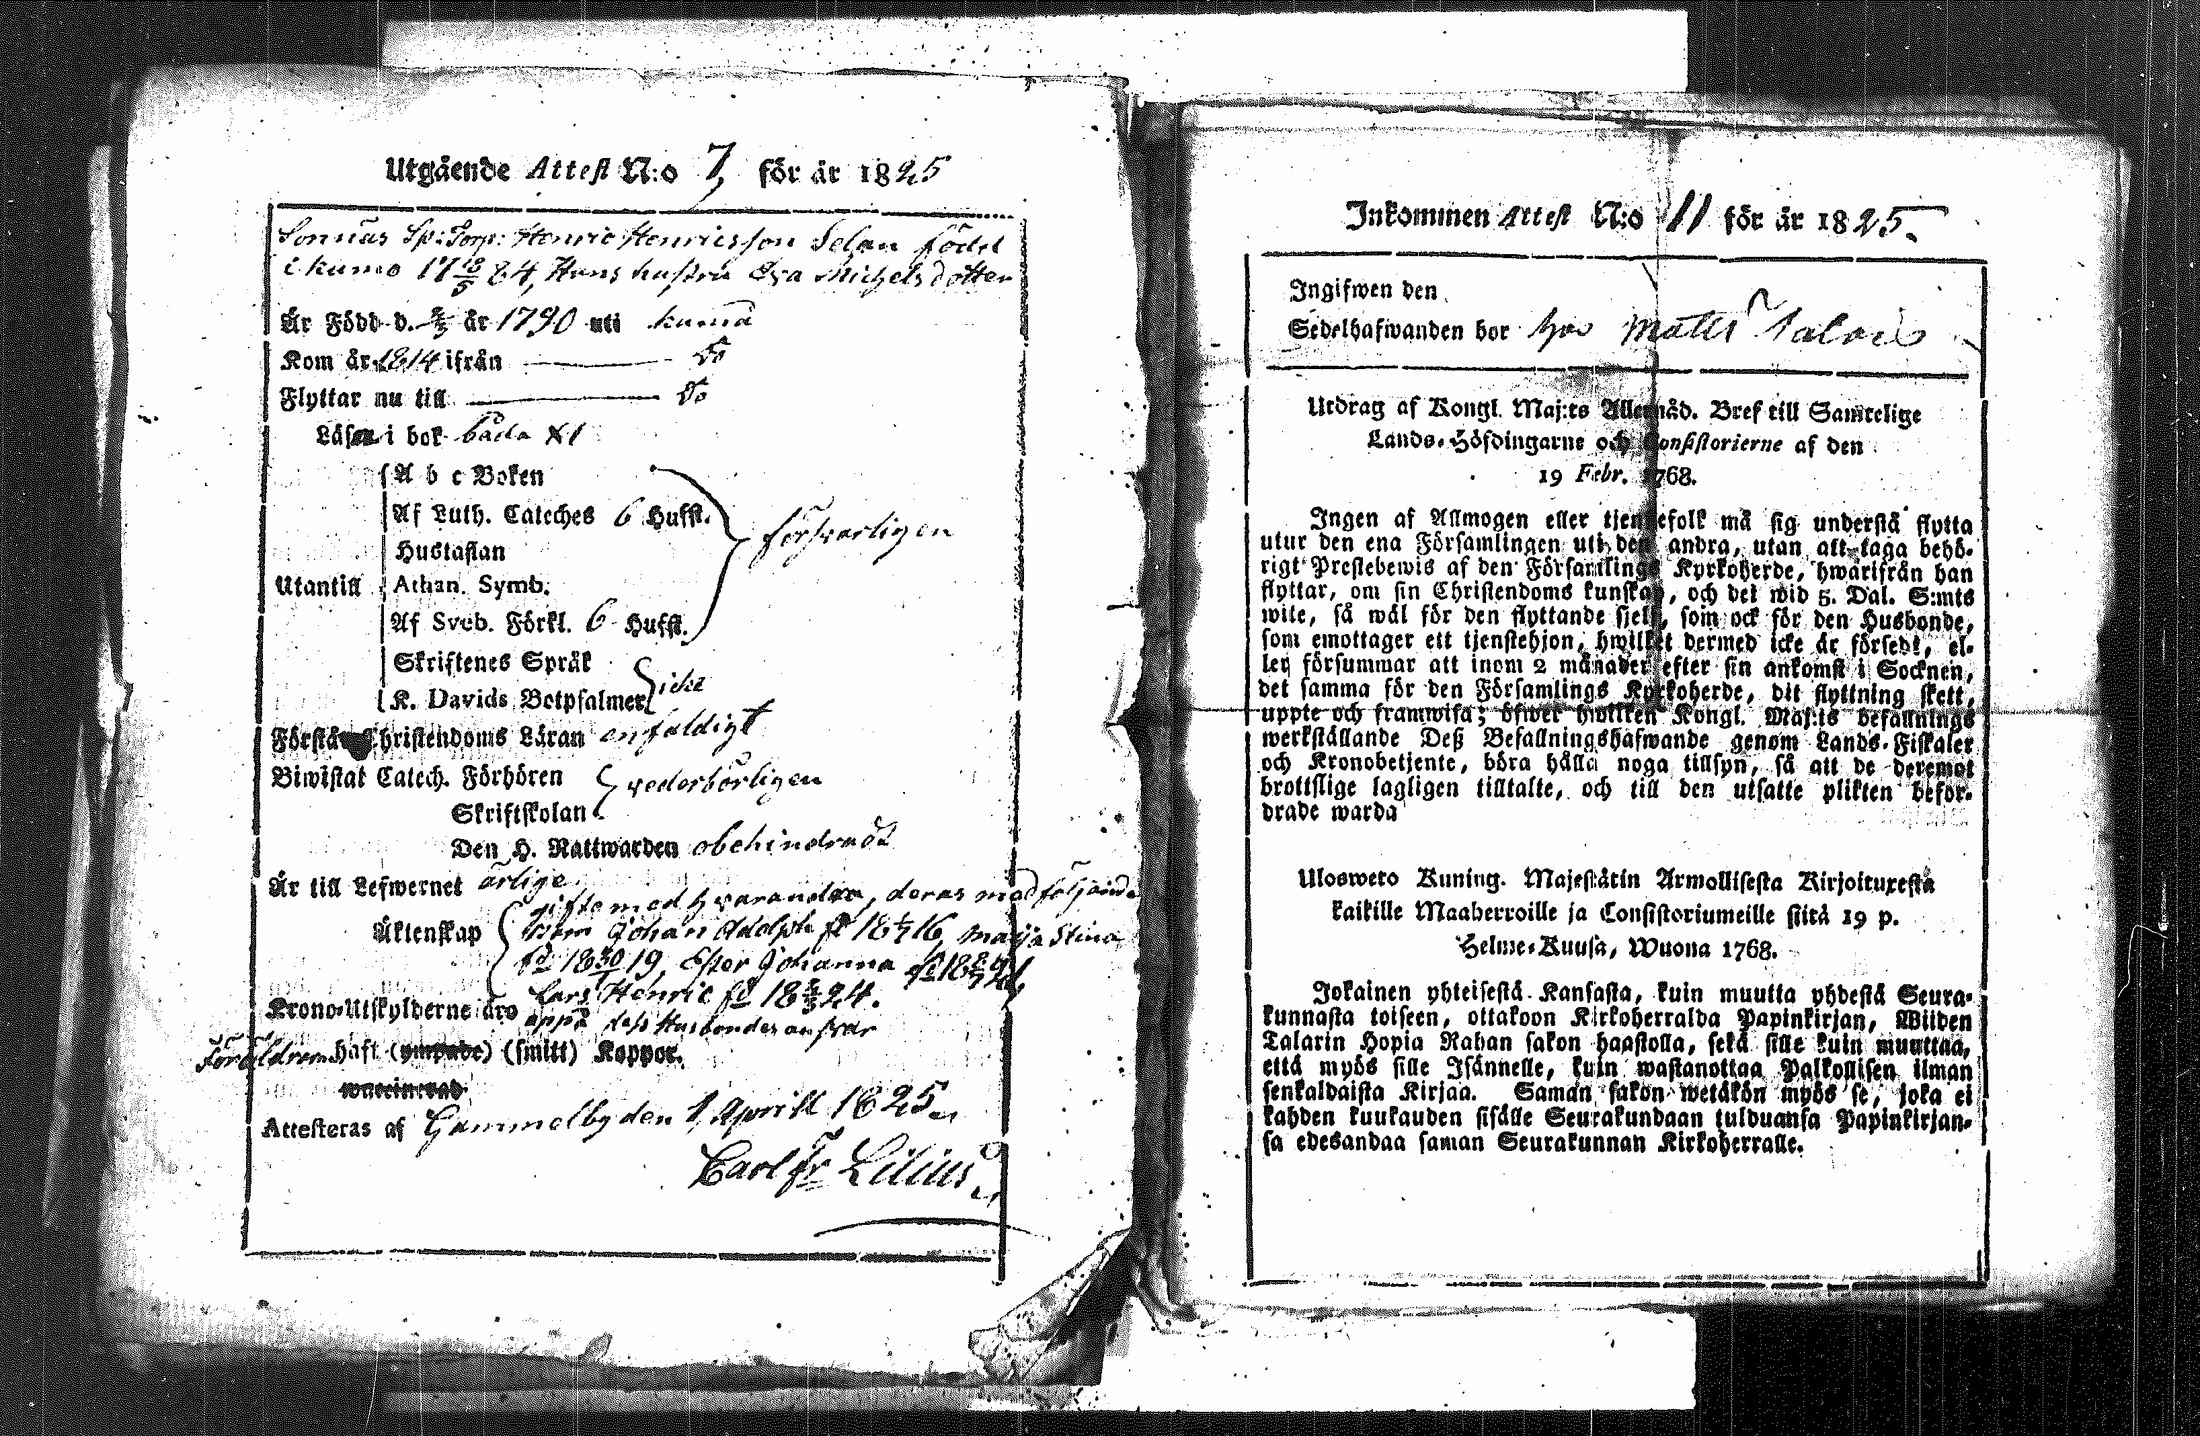 Utgående Attest N:o 7, för år 1825
Sonnäs Sp: Torp: Henric Henricsson Selan född
i kumo 17 18/5 84, Hans hustru Eva Michelsdotter
Är Född d. är 1790 uti kumå
Kom år 1814 ifrån do
Flyttar nu till do
Läsa i bok båda XI
A b c Boken
Af Luth. Cateches 6 Hufst.
försvarligen
Hustaflan
Utantill Athan. Symb.
Af Sveb. Förkl. 6 Hufst.
Skriftenes Språk
icke
K. Davids Botpsalmer
Förstå Christendoms Läran enfaldigt
Biwistat Catech. Förhören
vederbörligen
Skriftskolan
Den H. Nattwarden obehindradt
Är till Lefwernet ärlige
gifte med hvarandra, deras medföljande
Äktenskap barn Johan Adolph fd 18 16, Maija Stina
fd 18 30 19, Ester Johanna fd 18
Lars Henric fd 18 24.
Krono-Utskylderne äro uppå dess Husbondes ansvar
Föräldrarne haft (ympade) (smitt) Koppor.
waccinerad
Attesteras af Gammelby den 1 Aprill 1825.
Carl Fr Lilius
Inkommen Attest N:o 11 för år 1825.
Ingifwen den
Sedelhafwanden bor hos Matts
Utdrag af Kongl. Maj:ts Allernåd. Bref till Samtelige
Lands-Höfdingarne och Consistorierne af den
19 Febr. 1768.
Ingen af Allmogen eller tjenstefolk må sig understå flytta
utur den ena Församlingen uti den andra, utan att taga behö-
rigt Prestebewis af den Församlings Kyrkoherde, hwarifrån han
flyttar, om sin Christendoms kunskap, och det wid 5. Dal. S:mts
wite, så wäl för den flyttande sjelf, som ock för den Husbonde,
som emottager ett tjenstehjon, hwilket dermed icke är försedt, el-
ler försummar att inom 2 månader efter sin ankomst i Socknen,
det samma för den Församlings Kyrkoherde, dit flyttning skett,
uppte och framwisa; öfwer hwilken Kongl. Maj:ts befallnings
werkställande Deß Befallningshafwande genom Lands-Fiskaler
och Kronobetjente, böra hålla noga tillsyn, så att de deremot
brottslige lagligen tilltalte, och till den utsatte plikten befor-
drade warda
Ulosweto Kuning. Majestätin Armollisesta Kirjoituxesta
kaikille Maaherroille ja Consistoriumeille siitä 19 p.
Helme-Kuusa, Wuona 1768.
Jokainen yhteisestä Kansasta, kuin muutta yhdestä Seura-
kunnasta toiseen, ottakoon Kirkoherralda Papinkirjan, Wiiden
Talarin Hopia Rahan sakon haastolla, sekä sille kuin muuttaa,
että myös sille Isännelle, kuin wastanottaa Palkollisen ilman
senkaldaista Kirjaa. Saman sakon wetäkön myös se, joka ei
kahden kuukauden sisälle Seurakundaan tulduansa Papinkirjan-
sa edesandaa saman Seurakunnan Kirkoherralle.